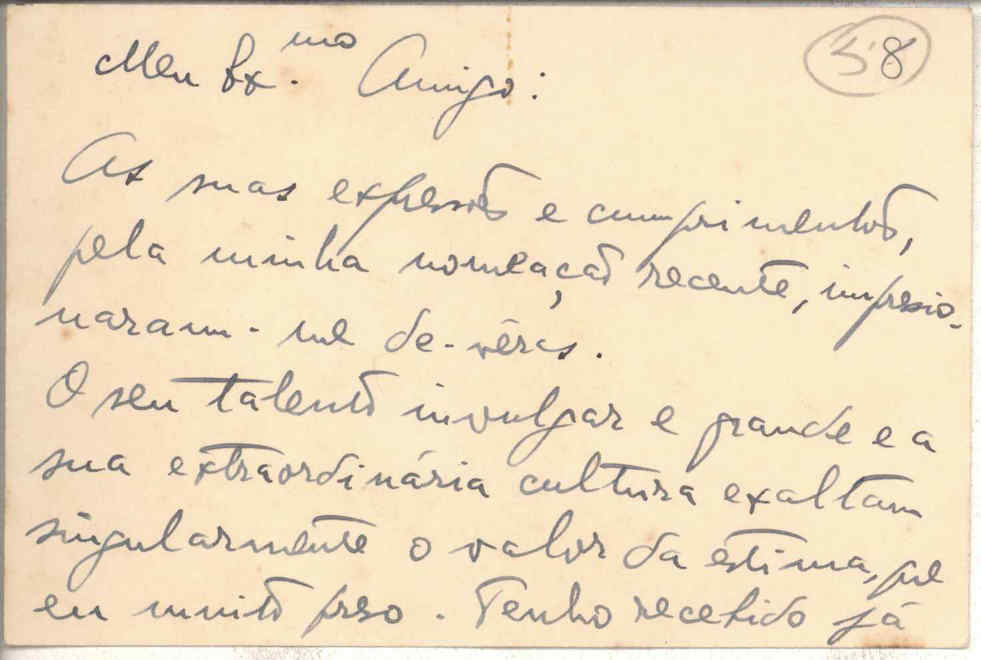 58
Meu Ex.mo Amigo:
As suas expressões e cumprimentos,
pela minha nomeação recente, impresio-
naram-me de-véras.
O seu talento invulgar e grande e a
sua extraordinária cultura exaltam
singularmente o valor da estima, que
eu muito preso. Tenho recebido já